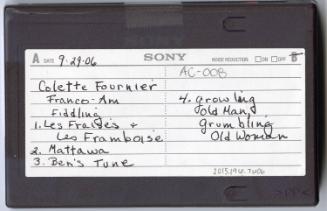 A DATE 9.29.06 SONY NOISE REDUCTION ON OFF B
AC-008
Colette Fournier
Franco-Am
Fiddling
1. Les Fraises &
Les Framboise
2. Mattawa
3. Ben's Tune
4. Growling
Old Man,
grumbling
Old Woman
2015.196.Tu06